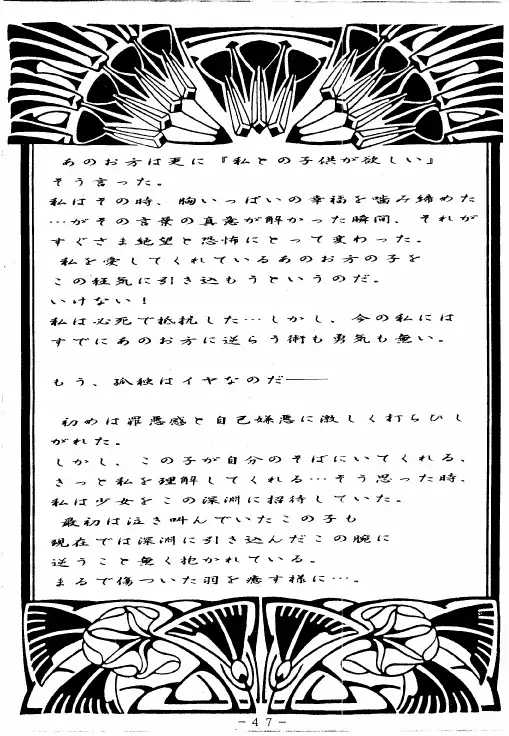 あのお方は更に『私との子供が欲しい』
そう言った。
私はその時、胸いっぱいの幸福を噛み締めた
…がその言葉の真意が解かった瞬間、それが
すぐさま絶望と恐怖にとって変わった。
私を愛してくれているあのお方の子を
この狂気に引き込もうというのだ。
いけない！
私は必死で抵抗した…しかし、今の私には
すでにあのお方に逆らう術も勇気も無い。
もう、孤独はイヤなのだ――
初めは罪悪感と自己嫌悪に激しく打らひし
がれた。
しかし、この子が自分のそばにいてくれる、
きっと私を理解してくれる…そう思った時、
私は少女をこの深淵に招待していた。
最初は泣き叫んでいたこの子も
現在では深淵に引き込んだこの腕に
逆うこと無く抱かれている。
まるで傷ついた羽を癒す様に…。
-47-